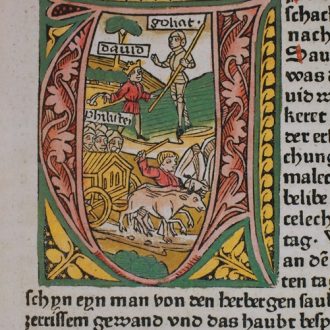 goliat.
dauid
philistei
schach
nach
Sau
was
uid w
keret
der erl
chung
malec
belibe
celech
tag.
an dē
ten ta
schyn eyn man von den herbergen sau
zerrissem gewand vnd das haubt bes